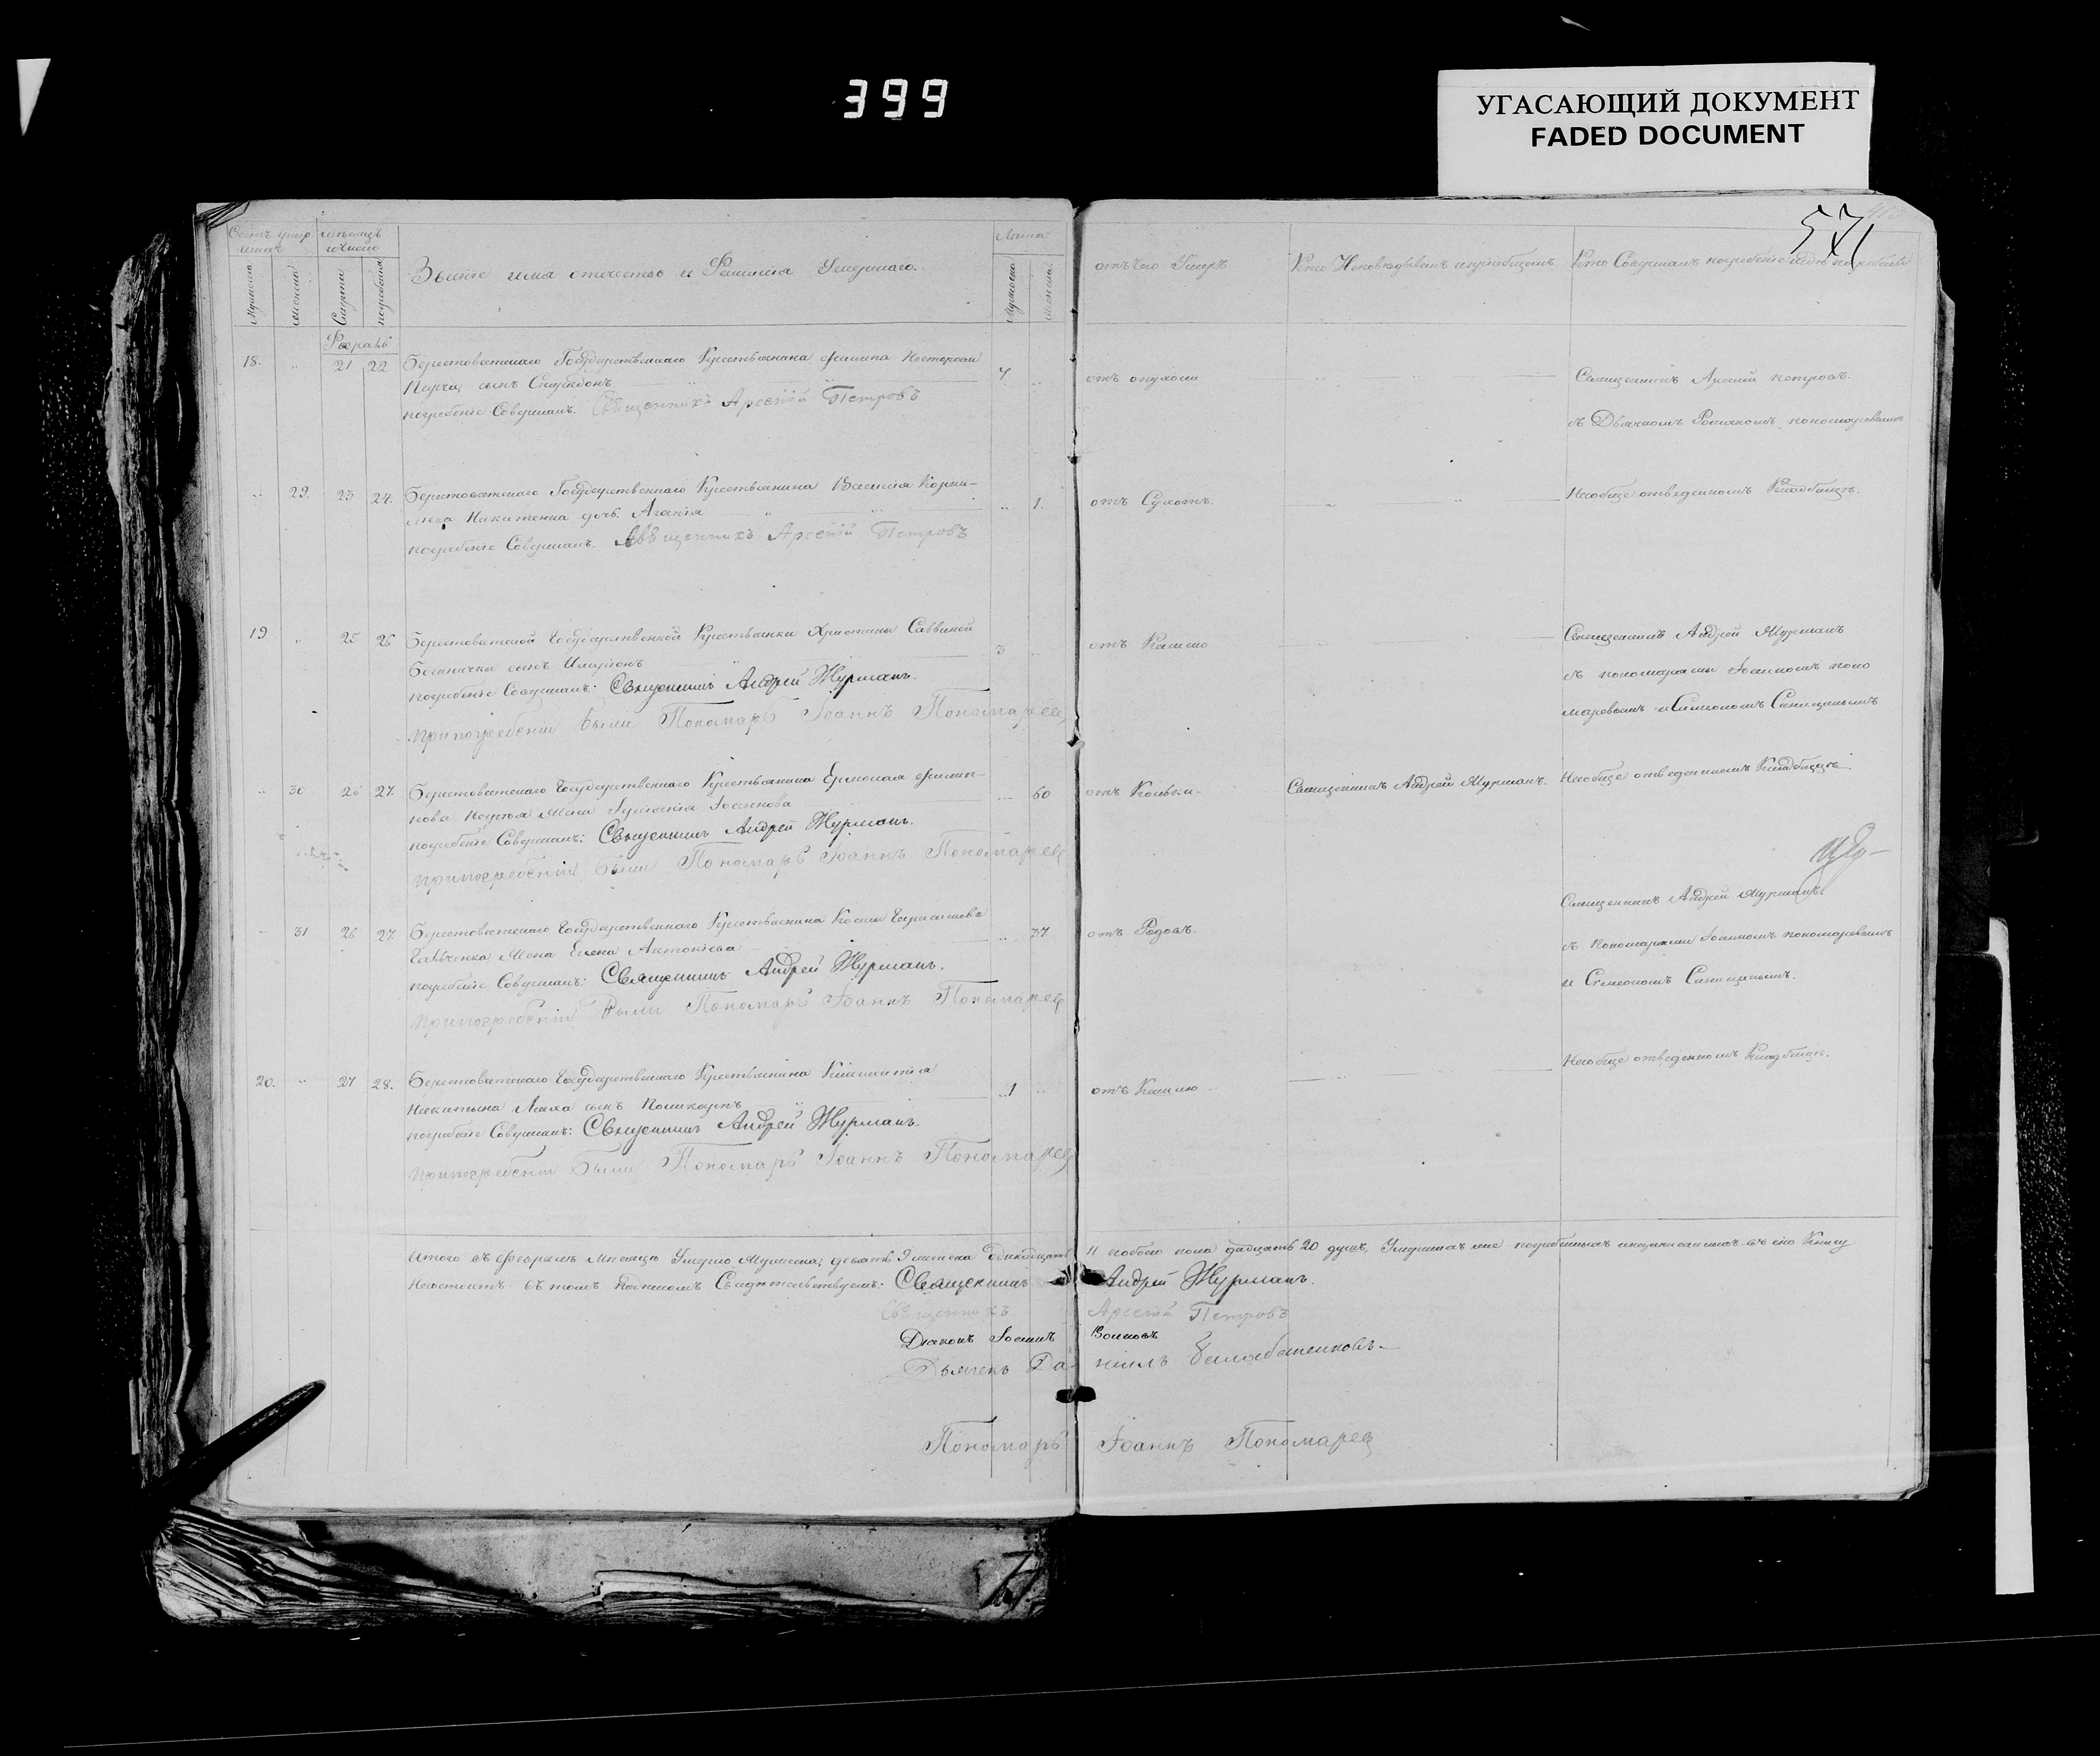 399
УГАСАЮЩИЙ ДОКУМЕНТ
FADED DOCUMENT
571
Счетъ умер месяцъ
шихъ и число
Лета
Мужеска
женска
Смерти
погребения
Званіе имя отчество и Фамилія Умершаго.
Мужеска
Женска
отъ чего Умеръ
Кто Исповедывалъ и пріобщалъ
Кто Совершалъ погребеніе и где погребены
Февраль
18. 21 22 Берестоватскаго Государственнаго Крестьянина Филипа Нестерова
сынъ Спиридонъ 7
погребеніе Совершалъ. Священникъ Арсеній Петровъ
отъ опухоли
Священникъ Арсеній Петровъ.
съ Дьячкомъ Романомъ пономаревымъ
29. 23 24. Берестоватскаго Государственнаго Крестьянина Василія Корни-
лиева Никитенка дочь Агафія 1.
погребеніе Совершалъ. Священникъ Арсеній Петровъ
отъ Сухотъ.
Наобще отведенномъ Кладбище.
19 25 26 Берестоватской Государственной Крестьянки Христины Саввиной
сынъ Иларіонъ 3
погребеніе Совершалъ: Священникъ Андрей Журманъ.
припогребеніи были Пономарь Іоаннъ Пономарев
отъ Кашлю
Священникъ Андрей Журманъ
съ пономарями Іоанномъ поно
маревымъ и Симеономъ Синицынымъ
30. 26 27. Берестоватскаго Государственнаго Крестьянина Ермолая Филип-
пова Жена Іоаннова 60
погребеніе Совершалъ: Священникъ Андрей Журманъ.
припогребеніи были Пономарь Іоаннъ Пономарев
отъ Кольки-
Священникъ Андрей Журманъ.
Наобще отведенномъ Кладбище
31 26 27. Берестоватскаго Государственнаго Крестьянина Космы Герасимова
Жена Елена Антоніева 37.
погребеніе Совершалъ: Священникъ Андрей Журманъ.
припогребеніи были Пономарь Іоаннъ Пономарев
отъ Родовъ.
Священникъ Андрей Журманъ
съ Пономарями Іоанномъ пономаревымъ
и Симеономъ Синицынымъ.
20. 27 28. Берестоватскаго Государственнаго Крестьянина Климентія
Никитина Ляха сынъ Поликарпъ 1
погребеніе Совершалъ: Священникъ Андрей Журманъ.
припогребеніи были Пономарь Іоаннъ Пономарев
отъ Кашлю
Наобще отведенномъ Кладбище.
Итого въ Феврале Месяце Умерло Мужеска: девять 9 женска одинадцать 11 обоего пола двадцать 20 душъ,
въ томъ Подписомъ Свидетельствуемъ: Священникъ Андрей Журманъ.
Священникъ Арсеній Петровъ
Діаконъ Іоаннъ Волковъ
Дьячекъ Даніилъ
Пономарь Іоаннъ Пономарев